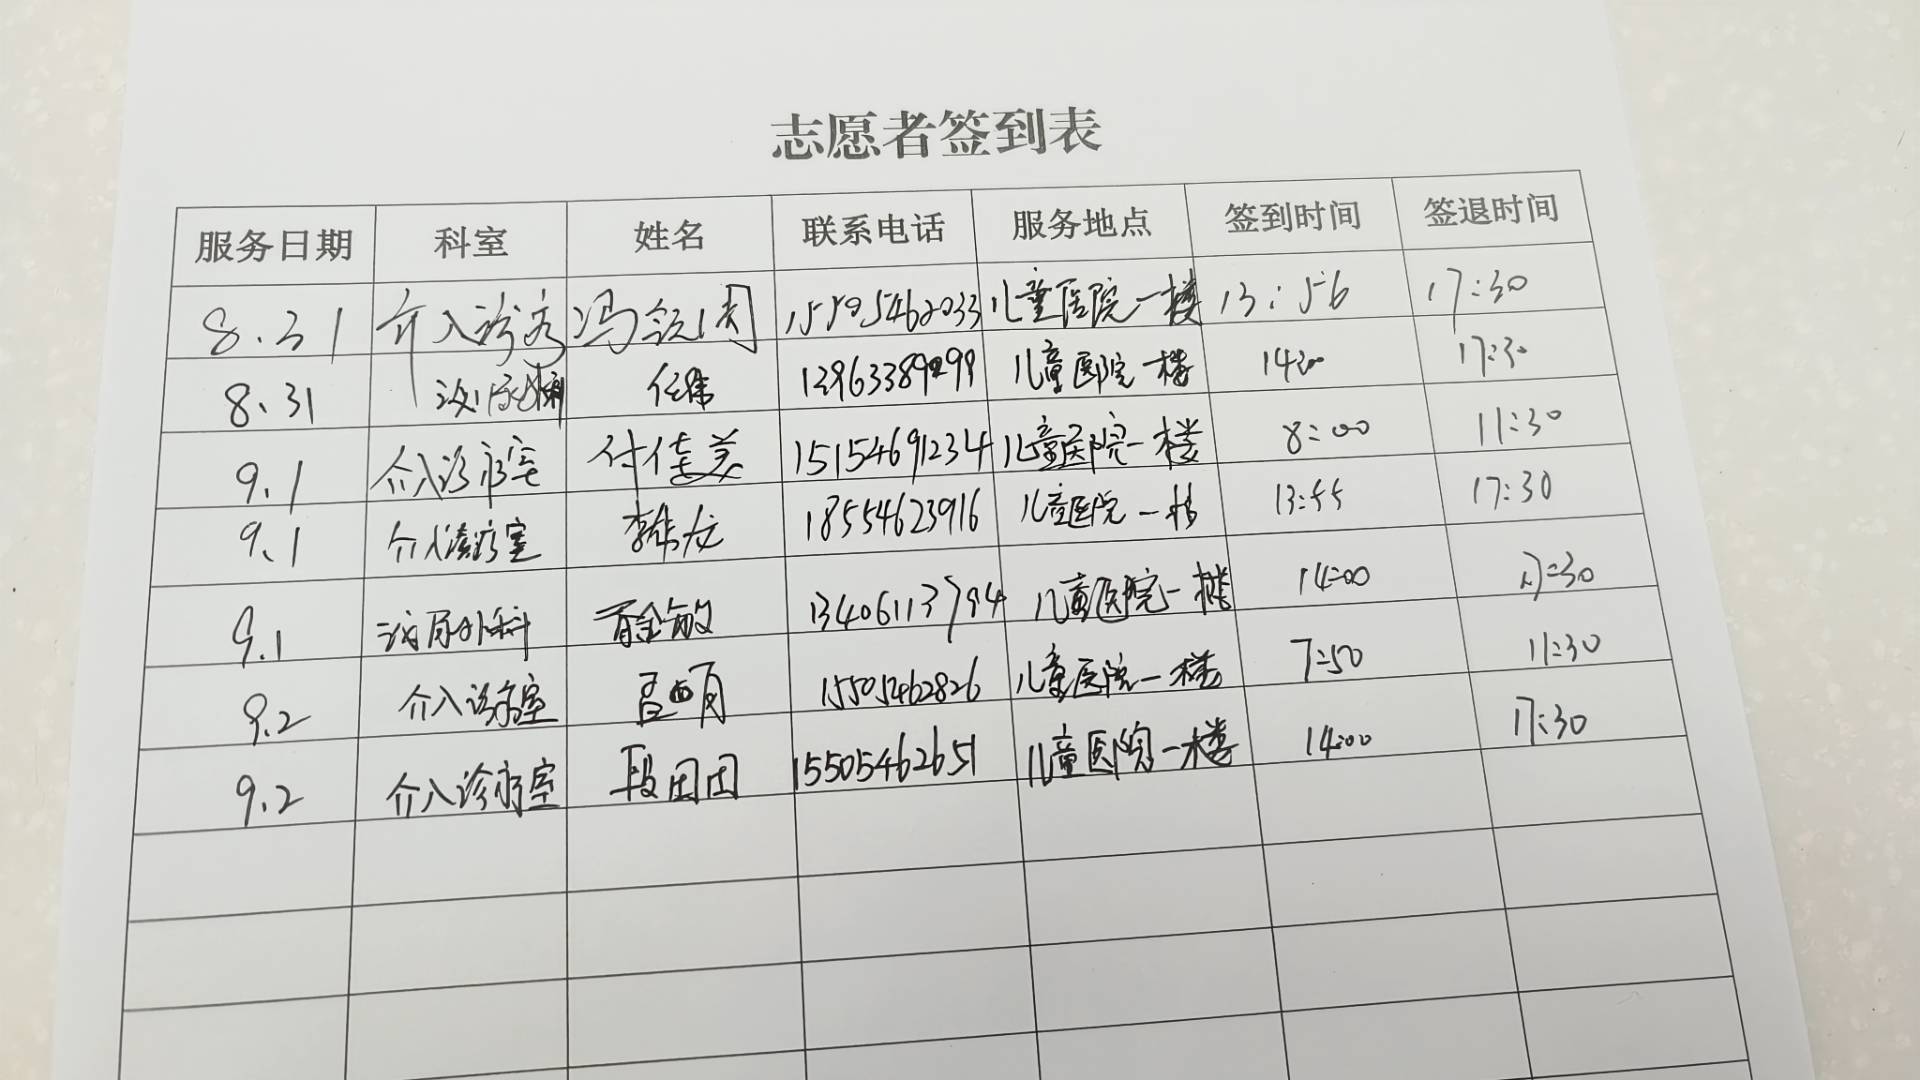 志愿者签到表
服务日期 科室 姓名 联系电话 服务地点 签到时间 签退时间
8.31 介入诊疗 冯 15505462033 儿童医院一楼 13:56 17:30
8.31 泌尿外科 任伟 儿童医院一楼 14:00 17:30
9.1 介入诊疗室 付佳美 15154691234 儿童医院一楼 8:00 11:30
9.1 介入诊疗室 18554623916 儿童医院一楼 13:55 17:30
9.1 泌尿外科 敏 13406113794 儿童医院一楼 14:00 17:30
9.2 介入诊疗室 15505462826 儿童医院一楼 7:50 11:30
9.2 介入诊疗室 段团团 15505462651 儿童医院一楼 14:00 17:30